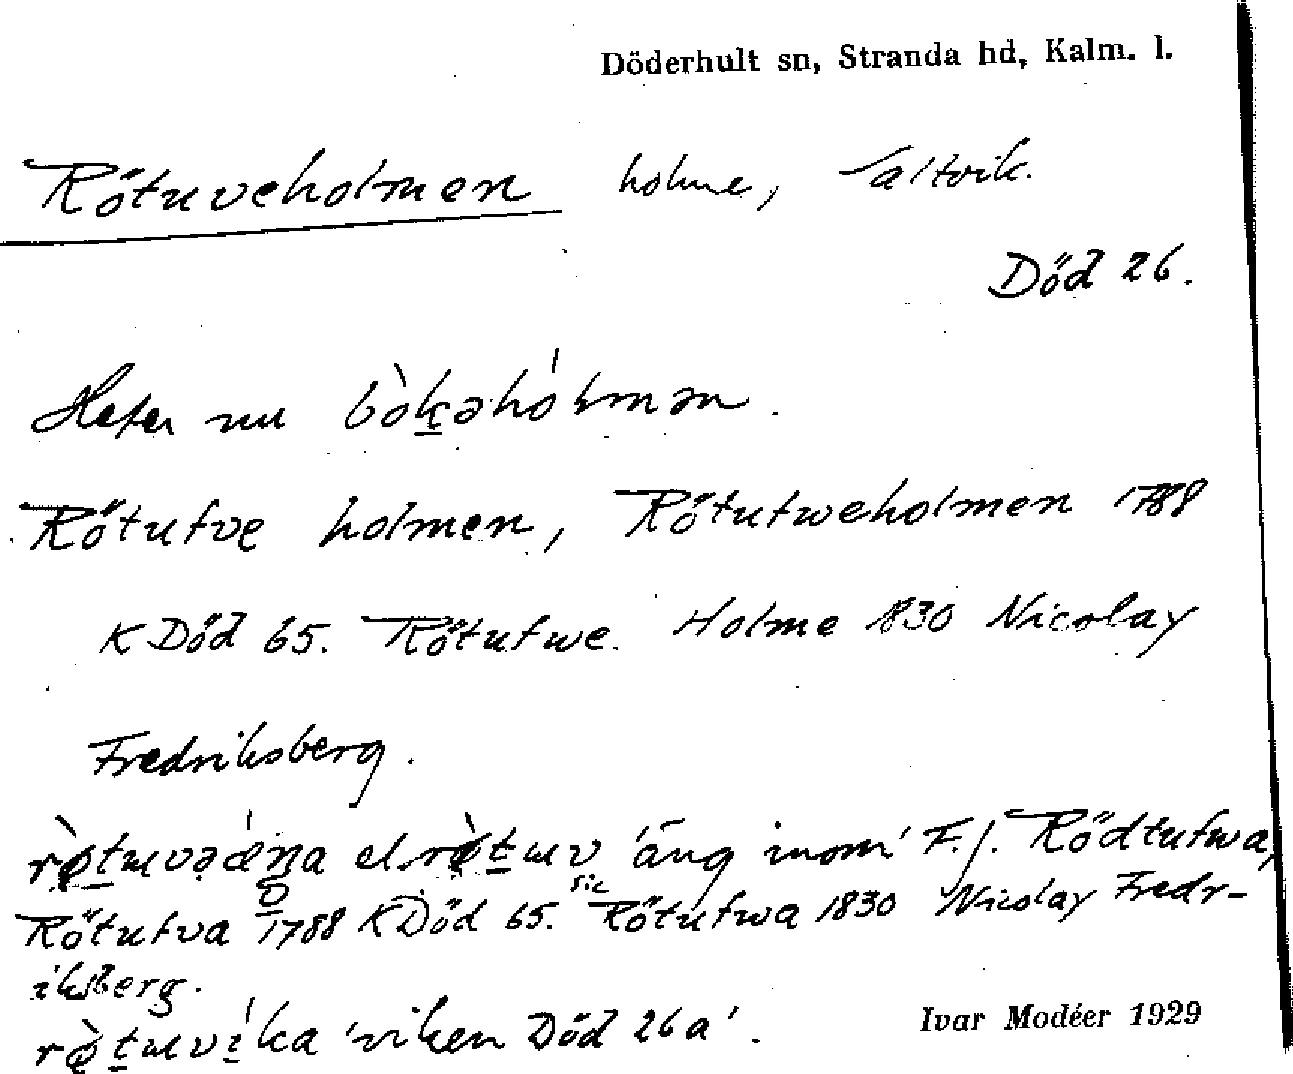 Döderhult sn, Stranda hd, Kalm. l.
Rötuveholmen holme, Saltvik.
Död 26.
Heter nu bòk̠əhólmən.
Rötutve holmen, Rötutweholmen 1788
K Död 65. Rötutwe. Holme 1830 Nicolay
Fredriksberg.
'äng inom' F.f. Rödtutwa,
sic
Rötutva 1788 K Död 65. Rötutwa 1830 Nicolay Fredr-
iksberg.
'viken Död 26 a'.
Ivar Modéer 1929